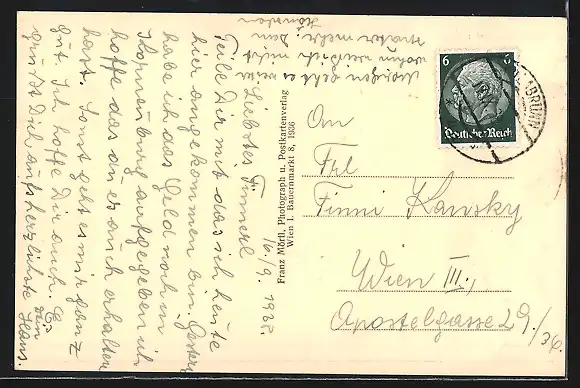 16/9. 1938.
Liebstes Finnerl
Teile Dir mit das ich heute
hier angekommen bin. Gestern
habe ich das Geld noch in
Korneuburg aufgegeben ich
hoffe das du es auch erhalten
hast. Sonst geht es mir ganz
gut. Ich hoffe Dir auch. Es
grüßt Dich aufs herzlichste
Dein Hans.
Morgen geht es weiter
wohin weiß ich nicht
später mehr. Dein
Franz Mörtl, Photograph u. Postkartenverlag
Wien I. Bauernmarkt 8, 1936
6 6
Deutsches Reich
BRUNN
An
Frl
Finni Kansky
Wien III.,
Apostelgasse 29./36.